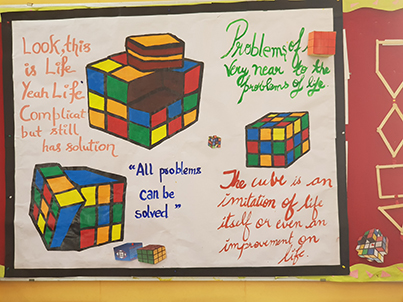 Look, this
is Life
Yeah Life
Complicat
but still
has solution
Problems of
very near to the
problems of life
"All problems
can be
solved"
The cube is an
imitation of life
itself or even an
improvement on
life.